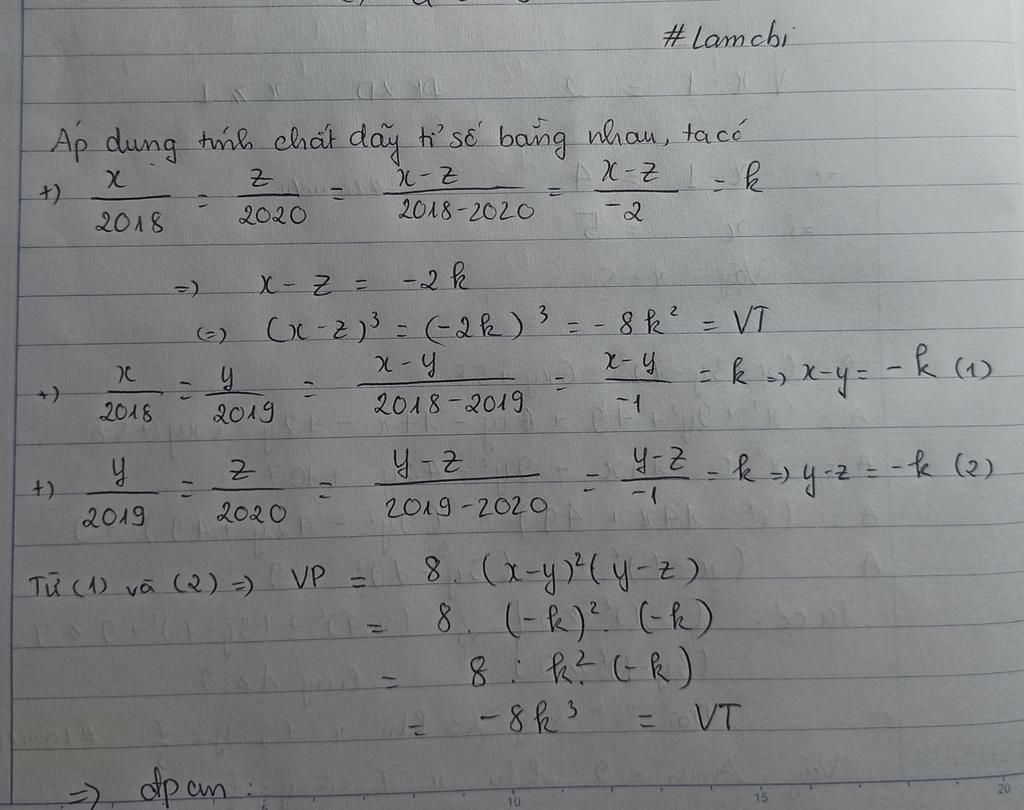 #Lamchi
Áp dung tính chất dãy tỉ số bằng nhau, ta có
+) x/2018 = z/2020 = x-z/2018-2020 = x-z/-2 = k
=> x - z = -2k
(=) (x-z)³ = (-2k)³ = -8k² = VT
+) x/2018 = y/2019 = x-y/2018-2019 = x-y/-1 = k => x-y = -k (1)
+) y/2019 = z/2020 = y-z/2019-2020 = y-z/-1 = k => y-z = -k (2)
Từ (1) và (2) => VP = 8. (x-y)²(y-z)
= 8. (-k)². (-k)
= 8 : k². (-k)
= -8k³ = VT
=> đpcm:
10 15 20